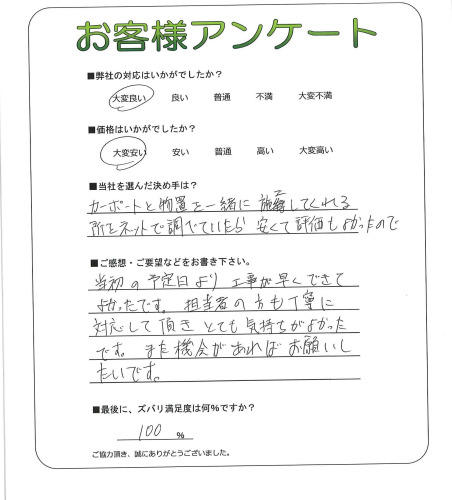 お客様アンケート
■弊社の対応はいかがでしたか？
大変良い 良い 普通 不満 大変不満
■価格はいかがでしたか？
大変安い 安い 普通 高い 大変高い
■当社を選んだ決め手は？
カーポートと物置を一緒に施工してくれる
所をネットで調べていたら 安くて評価もよかったので
■ご感想・ご要望などをお書き下さい。
当初の予定日より工事が早くできて
よかったです。担当者の方も丁寧に
対応して頂き とても気持ちがよかった
です。また機会があればお願いし
たいです。
■最後に、ズバリ満足度は何％ですか？
100 ％
ご協力頂き、誠にありがとうございました。